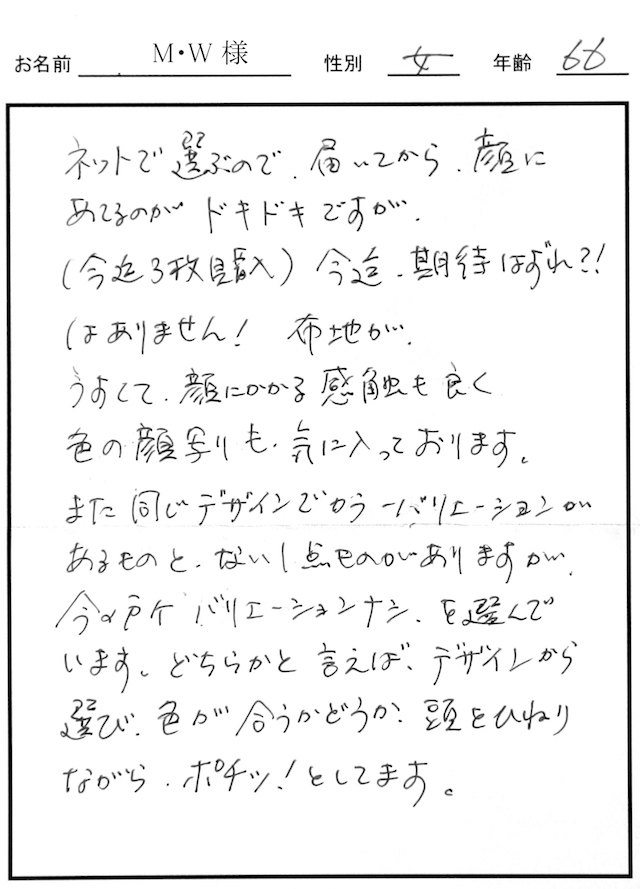 お名前 M・W 様 性別 女 年齢 66
ネットで選ぶので、届いてから、顔に
あてるのが ドキドキですが、
(今迄3枚購入) 今迄、期待はずれ?!
はありません! 布地が、
うすくて、顔にかかる感触も良く
色の顔写りも、気に入っております。
また同じデザインでカラーバリエーションが
あるものと、ない1点ものがありますが、
今の所 バリエーションナシ、を選んで
います。どちらかと言えば、デザインから
選び、色が合うかどうか、頭をひねり
ながら、ポチッ!としてます。